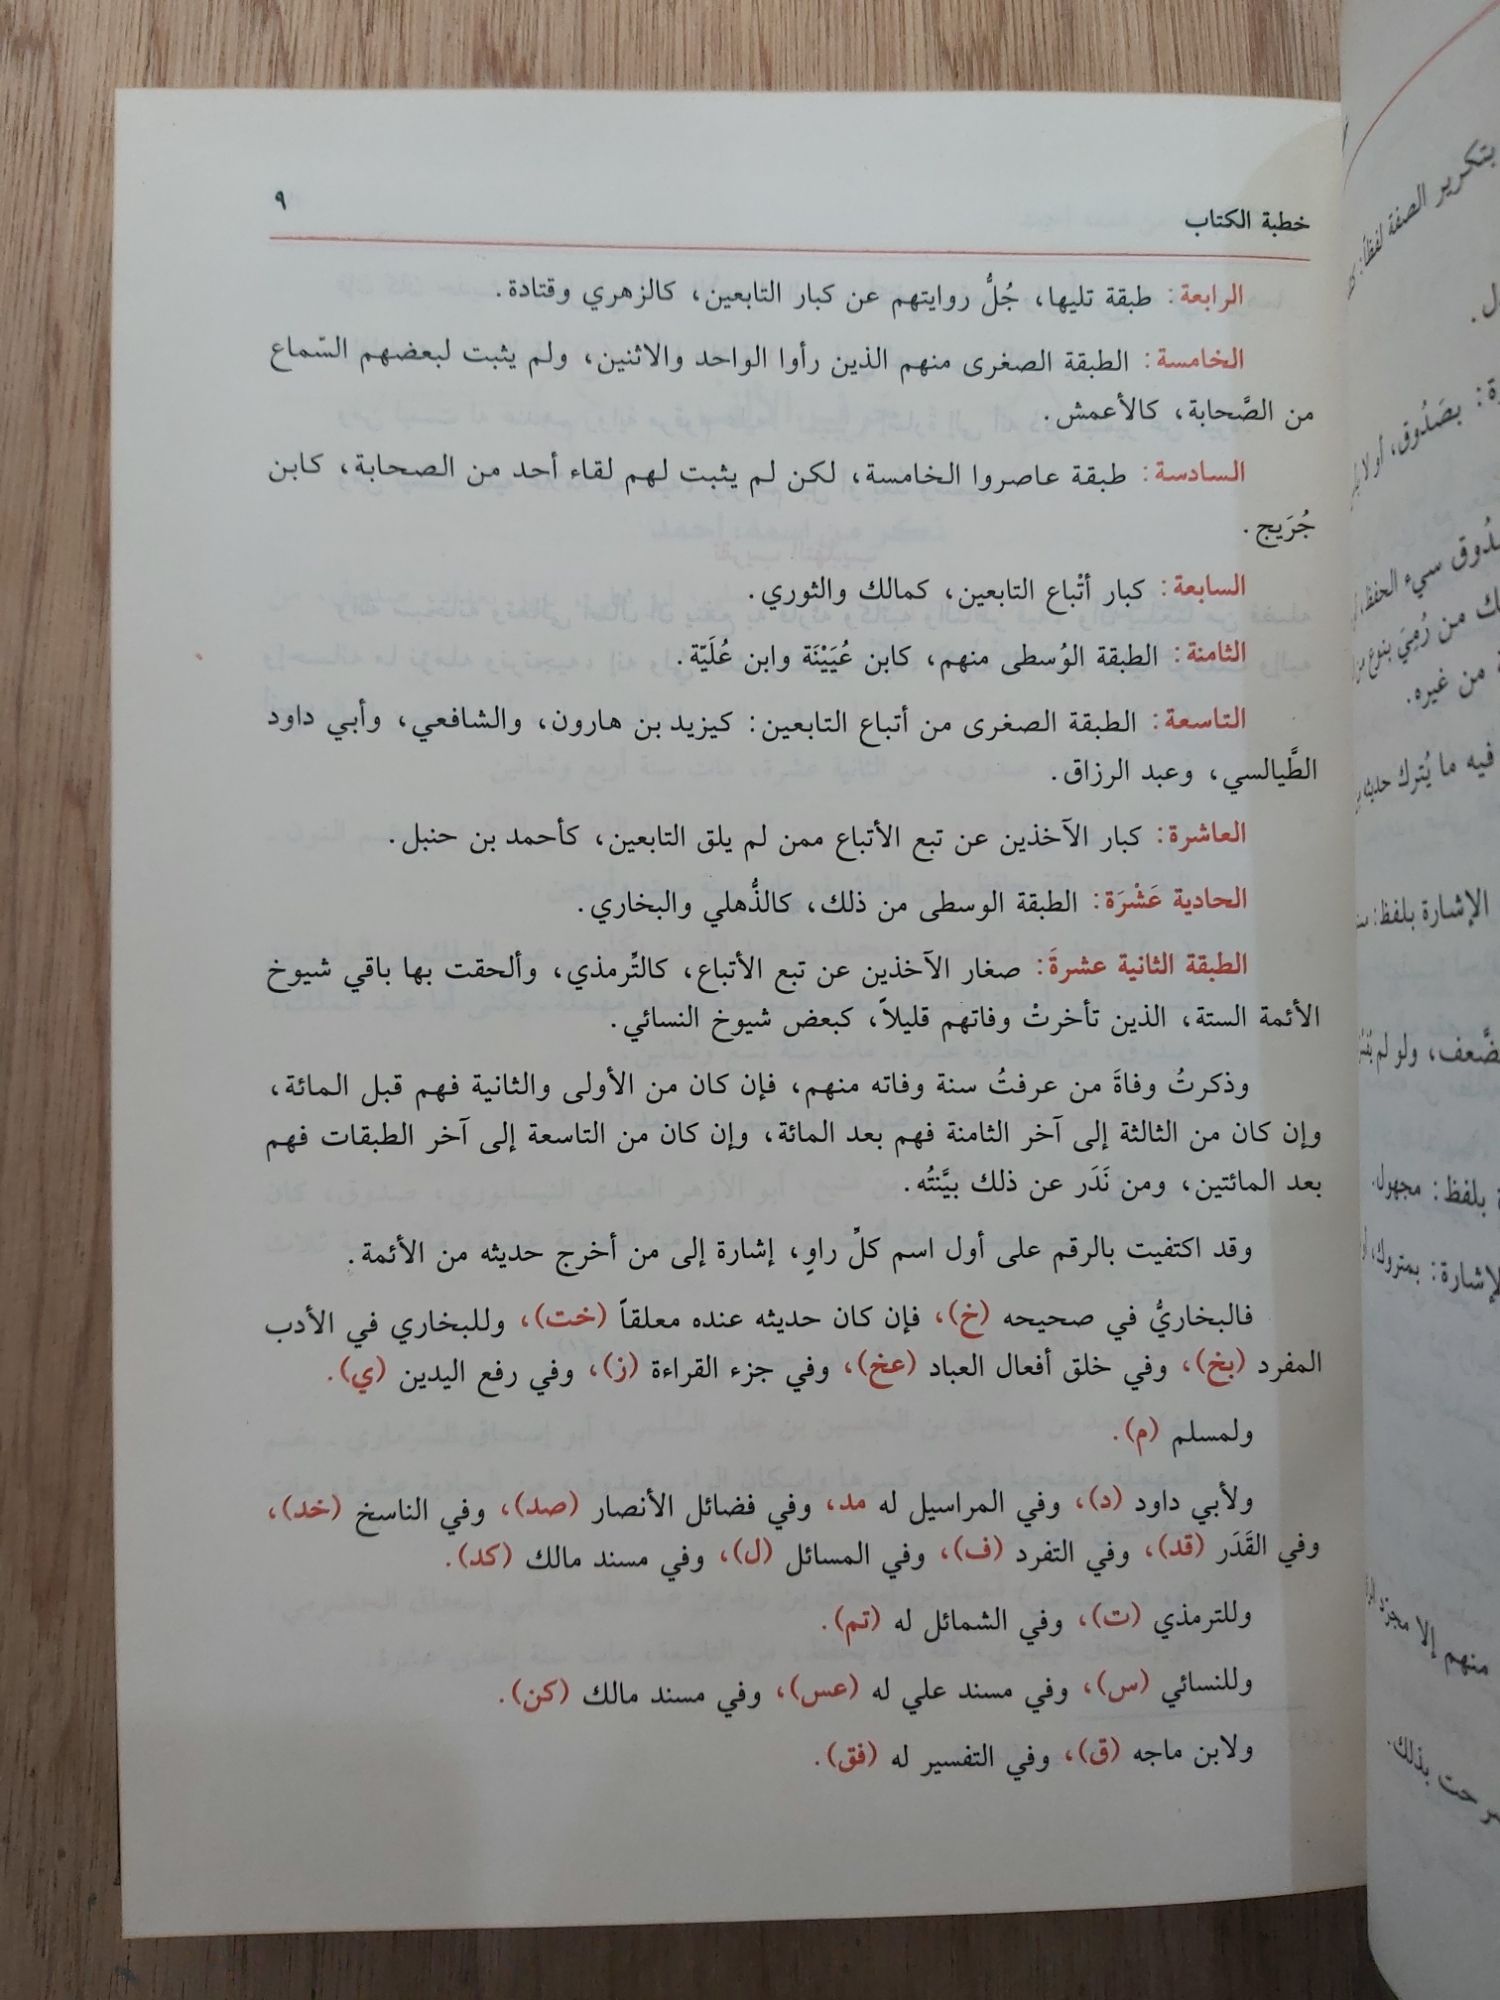 خطبة الكتاب ٩
الرابعة: طبقة تليها، جُلُّ روايتهم عن كبار التابعين، كالزهري وقتادة.
الخامسة: الطبقة الصغرى منهم الذين رأوا الواحد والاثنين، ولم يثبت لبعضهم السّماع
من الصَّحابة، كالأعمش.
السادسة: طبقة عاصروا الخامسة، لكن لم يثبت لهم لقاء أحد من الصحابة، كابن
جُرَيج.
السابعة: كبار أتْباع التابعين، كمالك والثوري.
الثامنة: الطبقة الوُسطى منهم، كابن عُيَيْنَة وابن عُلَيّة.
التاسعة: الطبقة الصغرى من أتباع التابعين: كيزيد بن هارون، والشافعي، وأبي داود
الطَّيالسي، وعبد الرزاق.
العاشرة: كبار الآخذين عن تبع الأتباع ممن لم يلق التابعين، كأحمد بن حنبل.
الحادية عَشْرَة: الطبقة الوسطى من ذلك، كالذُّهلي والبخاري.
الطبقة الثانية عشرةَ: صغار الآخذين عن تبع الأتباع، كالتِّرمذي، وألحقت بها باقي شيوخ
الأئمة الستة، الذين تأخرتْ وفاتهم قليلاً، كبعض شيوخ النسائي.
وذكرتُ وفاةَ من عرفتُ سنة وفاته منهم، فإن كان من الأولى والثانية فهم قبل المائة،
وإن كان من الثالثة إلى آخر الثامنة فهم بعد المائة، وإن كان من التاسعة إلى آخر الطبقات فهم
بعد المائتين، ومن نَدَر عن ذلك بيَّنتُه.
وقد اكتفيت بالرقم على أول اسم كلِّ راوٍ، إشارة إلى من أخرج حديثه من الأئمة.
فالبخاريُّ في صحيحه (خ)، فإن كان حديثه عنده معلقاً (خت)، وللبخاري في الأدب
المفرد (بخ)، وفي خلق أفعال العباد (عخ)، وفي جزء القراءة (ز)، وفي رفع اليدين (ي).
ولمسلم (م).
ولأبي داود (د)، وفي المراسيل له مد، وفي فضائل الأنصار (صد)، وفي الناسخ (خد)،
وفي القَدَر (قد)، وفي التفرد (ف)، وفي المسائل (ل)، وفي مسند مالك (كد).
وللترمذي (ت)، وفي الشمائل له (تم).
وللنسائي (س)، وفي مسند علي له (عس)، وفي مسند مالك (كن).
ولابن ماجه (ق)، وفي التفسير له (فق).
بتكرير الصفة لفظاً:
بصَدُوق، أو لا
سيء الحفظ،
من رُمِيَ بنوع
من غيره.
فيه ما يُترك حديثه
الإشارة بلفظ:
ولو لم
بلفظ: مجهول.
بمتروك،
منهم إلا
بذلك.